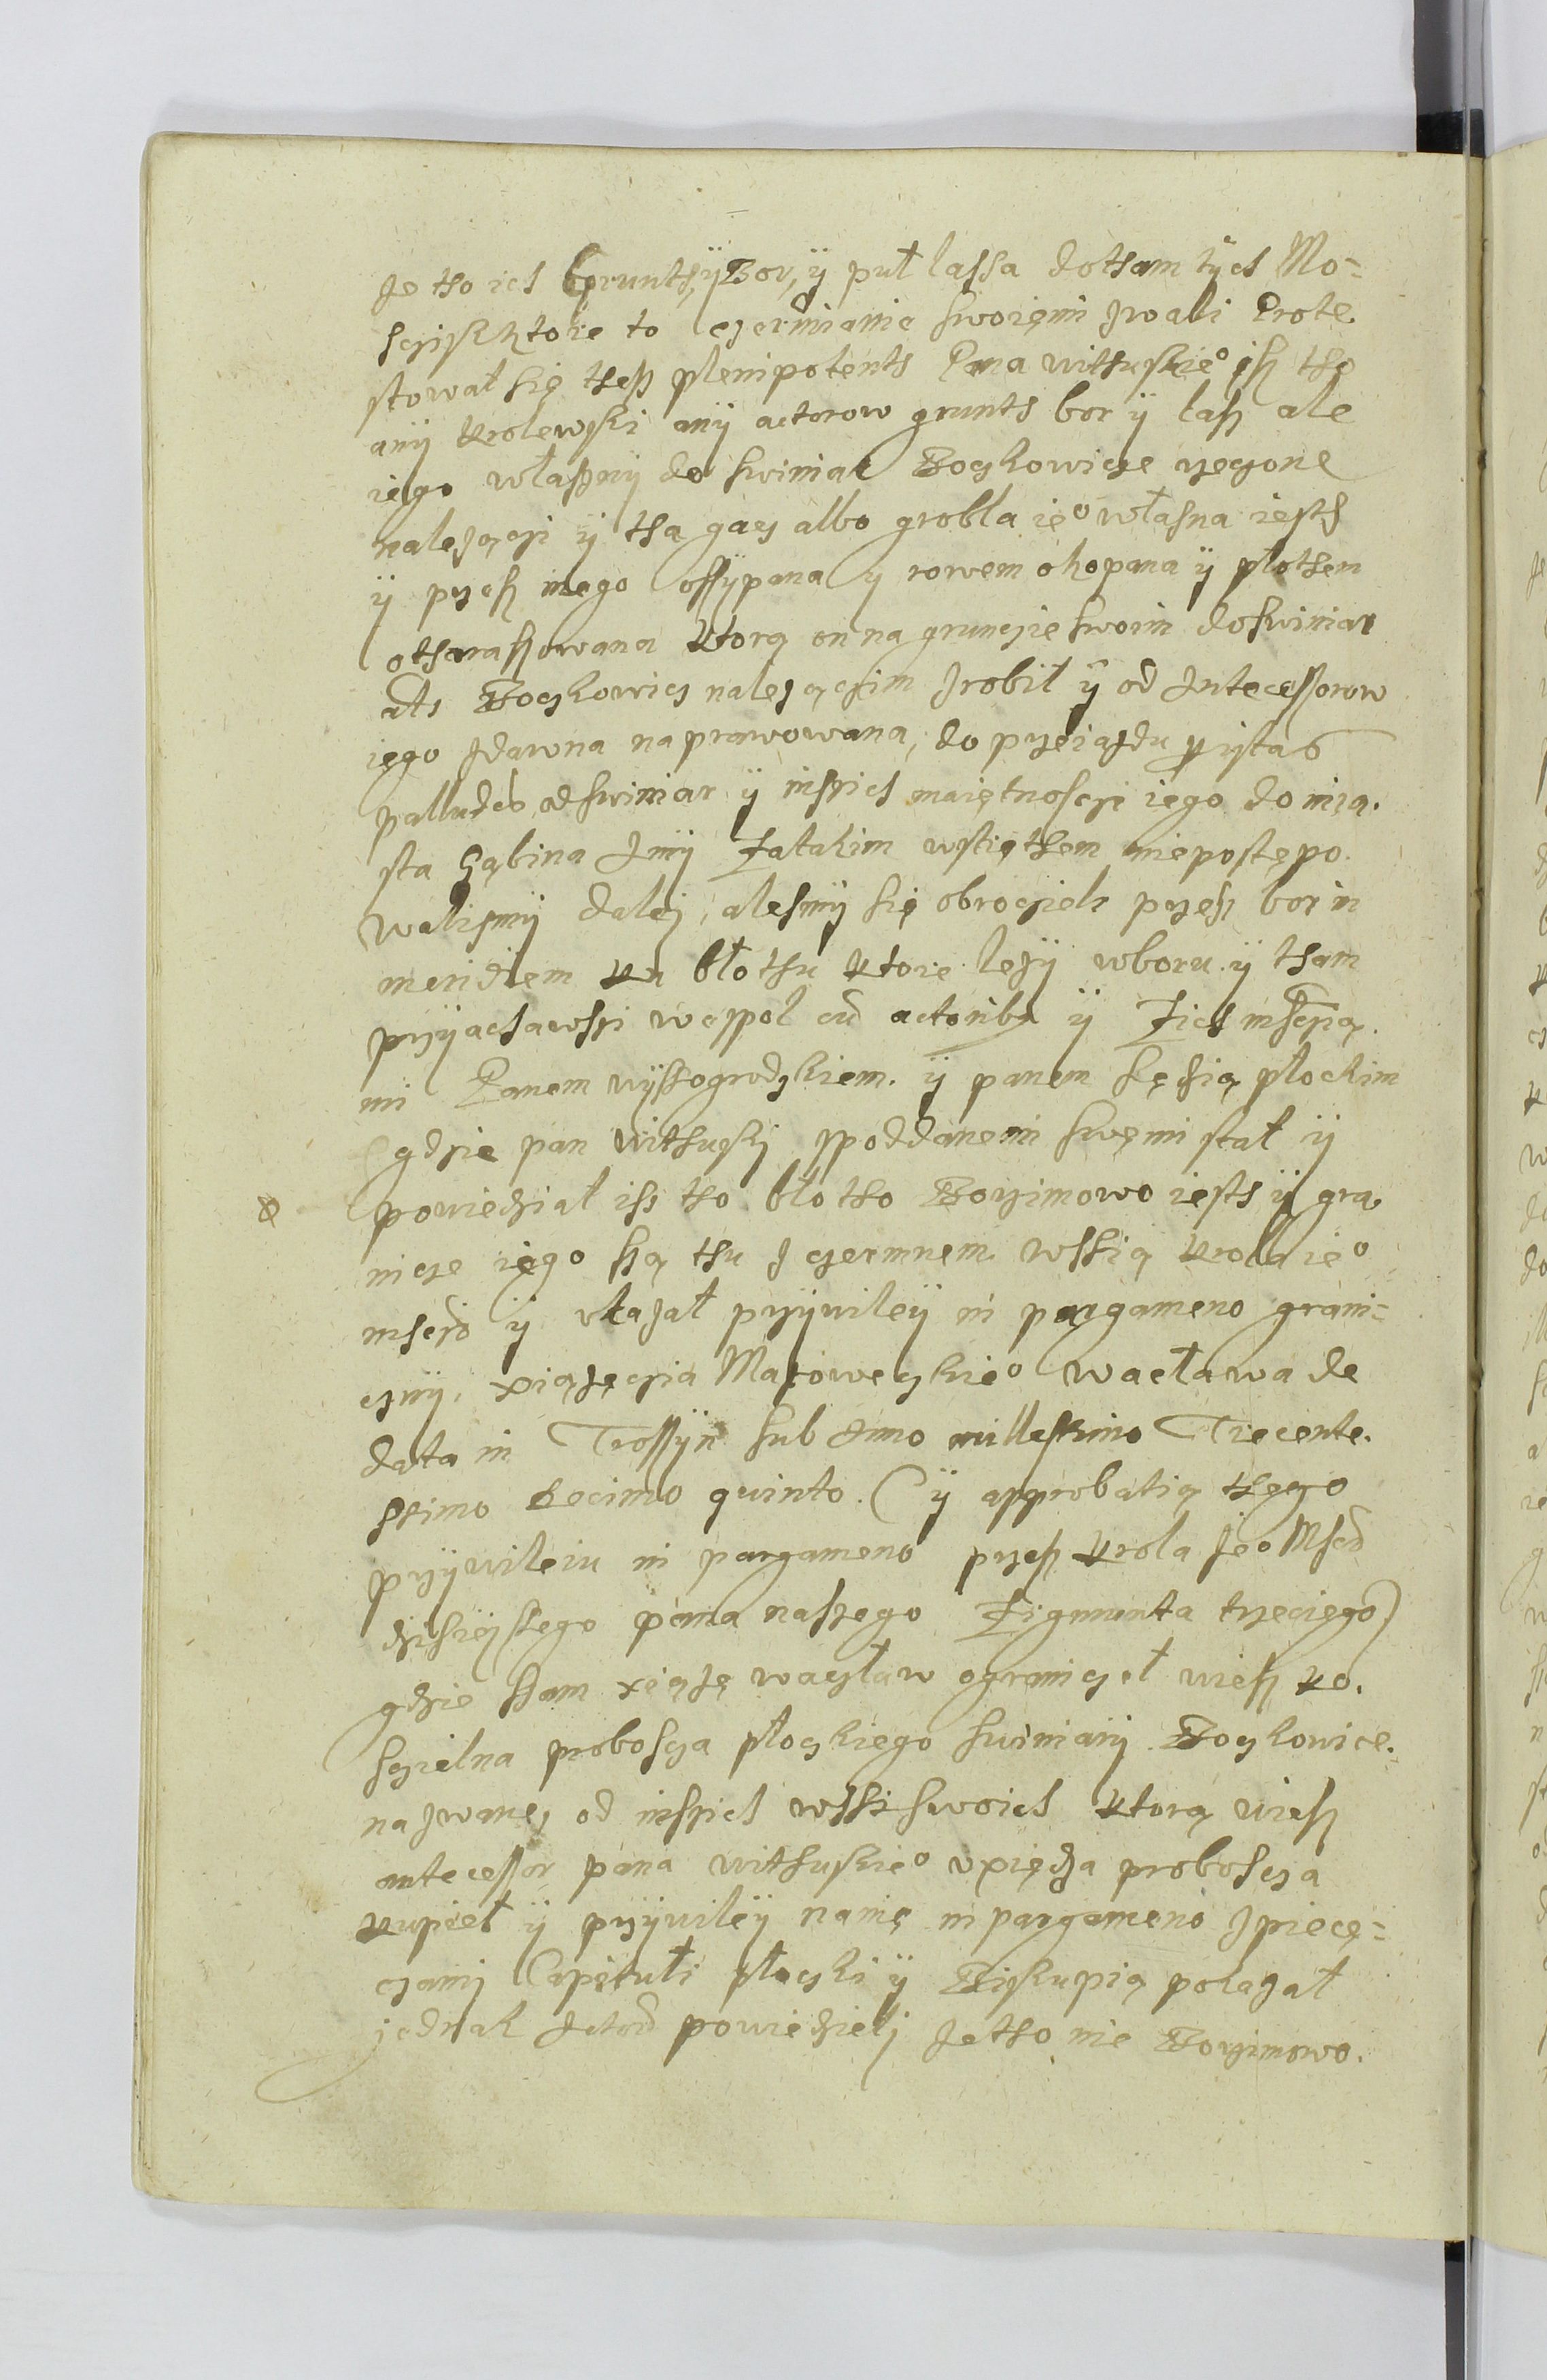 ze tho ich Grunth, y Bor, y puł lassa dotham tych Mo-
scziskktore to czermianie swoięmi zwali Prote
stował się thesz plenipotenth Pana withuskie° isz tho
any krolewski any actorow grunth bor y lasz ale
iego własny do swiniar Boczkowicze rzeczone
należączi y tha gacz albo grobla ie° własna iesth
y przesz niego ossypana y rowem okopana y płothem
otharassowana ktorą on na grunczie swoim doswiniar
als Boczkowicz należączim zrobił y od Antecessorow
iego zdawna naprawowana, do przeiazdu p istas
palludes od swiniar y inszich maiętnosczi iego do mia.
sta Gąbina A my Zatakim wstiąthem niepostępo.
walismy daley, alesmy się obrocieli przesz bor in
meridiem ku błothu ktore leży wboru y tham
przyachawszi wespol cu actorib9 y Zich mscia.
mi Panem wyssogrodzkiem. y panem sędzią płockim
gdzie pan withusky spoddanemi swęmi stał y
powiedział iss tho błotho Borzimowo iesth y gra
nicze iego są thu z czermnem wssią krola ie°
msczi y ukazał przywiley in pargameno grani-
czny, xiążęczia Mazoweczkie° wacława de
data in Trossyn sub Anno millesimo Trecente.
ssimo decimo quinto. (y approbatią thego
przywileiu in pargameno przesz krola Jeo Msci
dzisieyszego pana naszego Zigmunta trzeciego)
gdzie sam xiążę waczław ograniczeł wiesz ko.
sczielna proboscza płoczkiego swiniary Boczkowice.
nazwane, od inszich wssi swoich ktorą wiesz
antecessor pana withuskie° uxiędza proboscza
kupieł y przywiley nanię in pargameno zpiecę-
czami Capitułi płoczki y Biskupią pokazał
jednak Actores powiedziely że tho nie Borzimowo.